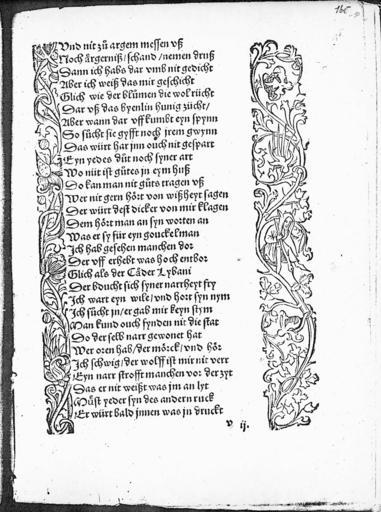 Vnd nit zů argem messen vß
Noch årgerniß/schand/nemen druß
Dann ich habs dar vmb nit gedicht
Aber ich weiß das mir geschicht
Glich wie der blůmen die wol rücht
Dar vß das byenlin hunig zücht/
Aber wann dar vff kumbt eyn spynn
So sůcht sie gyfft noch jrem gwynn
Das würt har jnn ouch nit gespart
Eyn yedes důt noch syner art
Wo nüt ist gůtes jn eym huß
Do kan man nit gůts tragen vß
Wer nit gern hört von wißheyt sagen
Der würt dest dicker von mir klagen
Dem hört man an syn worten an
Was er sy für eyn gouckelman
Ich hab gesehen manchen dor
Der vff erhebt was hoch entbor
Glich als der Cåder Lybani
Der bducht sich syner narrheyt fry
Ich wart eyn wile/vnd hort syn nym
Ich sůcht jn/er gab mir keyn stym
Man kund ouch fynden nit die stat
Do der selb narr gewonet hat
Wer oren hab/der mörck/vnd hör
Ich schwig/der wolff ist mir nit verr
Eyn narr strofft manchen vor der zyt
Das er nit weißt was jm an lyt
Můst yeder syn des andern ruck
Er würt bald jnnen was jn druckt
v ij.